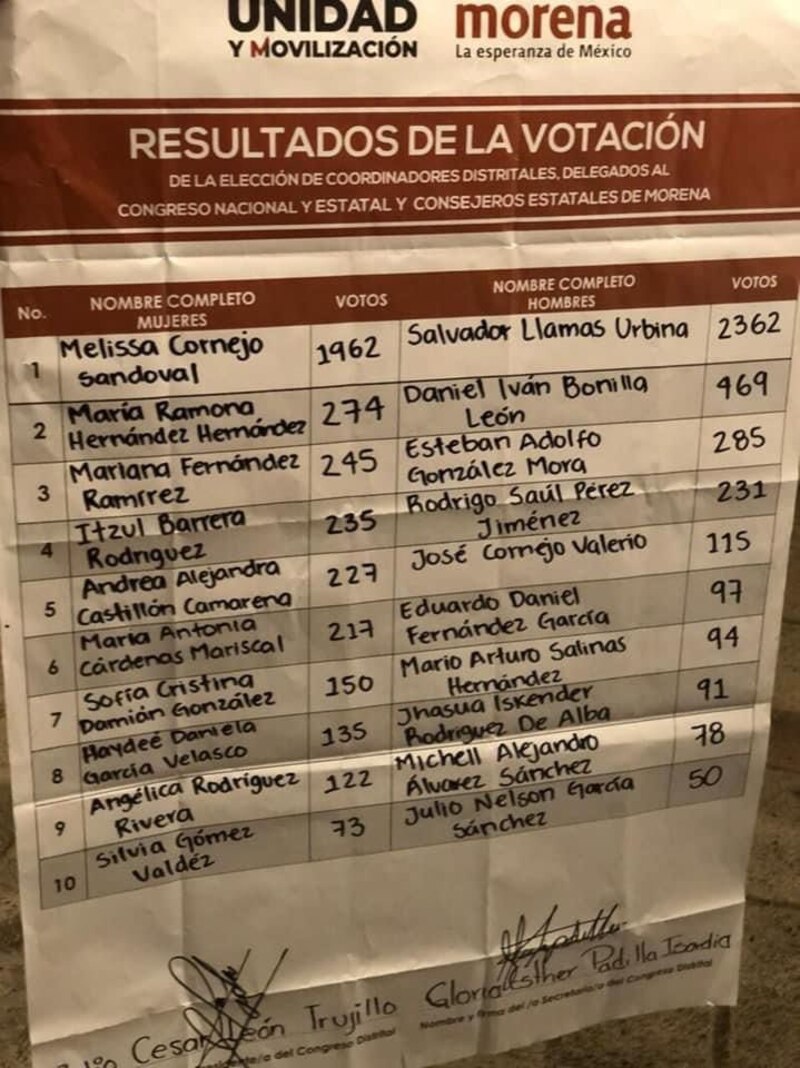 UNIDAD
Y MOVILIZACIÓN
morena
La esperanza de México
RESULTADOS DE LA VOTACIÓN
DE LA ELECCIÓN DE COORDINADORES DISTRITALES, DELEGADOS AL
CONGRESO NACIONAL Y ESTATAL Y CONSEJEROS ESTATALES DE MORENA
No. NOMBRE COMPLETO MUJERES VOTOS NOMBRE COMPLETO HOMBRES VOTOS
1 Melissa Cornejo Sandoval 1962 Salvador Llamas Urbina 2362
2 María Ramona Hernández Hernández 274 Daniel Iván Bonilla León 469
3 Mariana Fernández Ramírez 245 Esteban Adolfo González Mora 285
4 Itzul Barrera Rodríguez 235 Rodrigo Saúl Pérez Jiménez 231
5 Andrea Alejandra Castillón Camarena 227 José Cornejo Valerio 115
6 María Antonia Cárdenas Mariscal 217 Eduardo Daniel Fernández García 97
7 Sofía Cristina Damián González 150 Mario Arturo Salinas Hernández 94
8 Haydeé Daniela García Velasco 135 Jhasua Iskender Rodriguez De Alba 91
9 Angélica Rodríguez Rivera 122 Michell Alejandro Álvarez Sánchez 78
10 Silvia Gómez Valdéz 73 Julio Nelson García Sánchez 50
Cesar León Trujillo
Gloria Esther Padilla
del Congreso Distrital
Nombre y firma del /a Secretario/a del Congreso Distrital